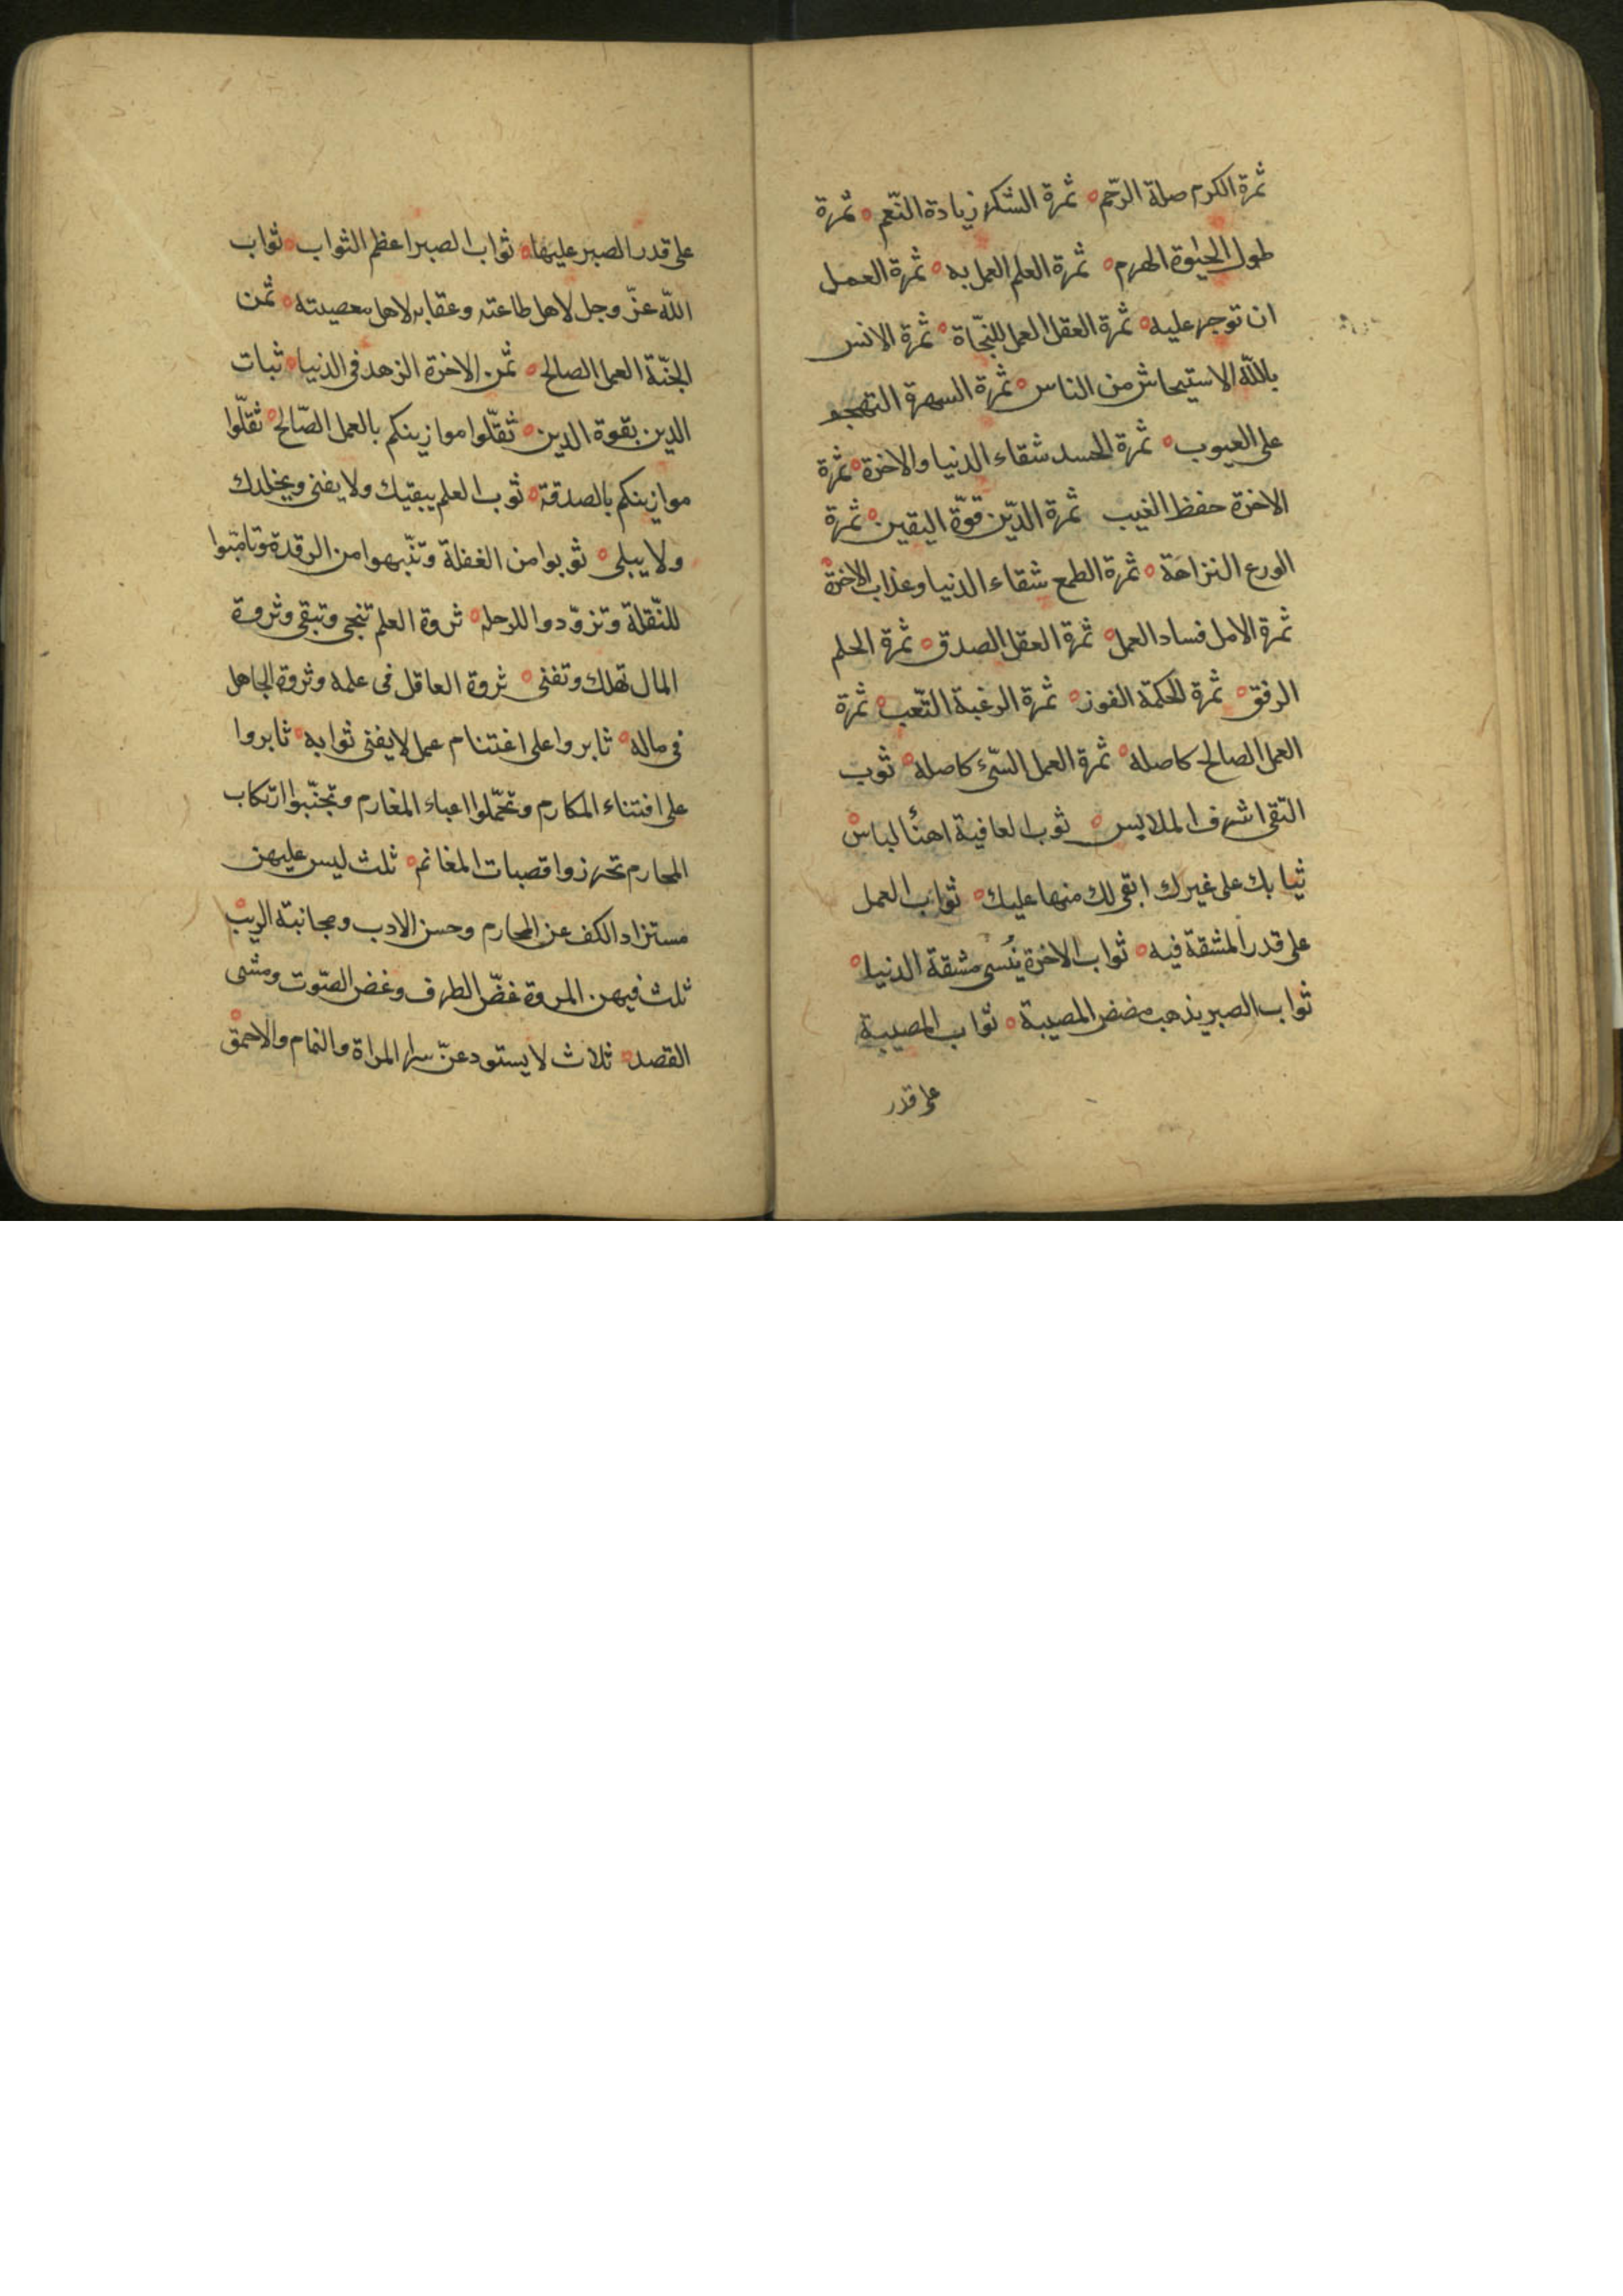 ثمرة الكرم صلة الرّحم ه ثمرة الشكر زيادة النّعم ه ثمرة
طول الحيٰوة الهرم ه ثمرة العلم العمل به ه ثمرة العمل
ان توجر عليه ه ثمرة العقل العمل للنجّاة ه ثمرة الانس
باللّه الاستيحاش من الناس ه ثمرة السهرة التهجو
على العيوب ه ثمرة الحسد شقاء الدنيا والاخرة ه ثمرة
الاخرة حفظ الغيب ثمرة الدّين قوّة اليقين ه ثمرة
الورع النزاهة ه ثمرة الطمع شقاء الدنيا وعذاب الاخرة ه
ثمرة الامل فساد العمل ه ثمرة العقل الصدق ه ثمرة الحلم
الرفق ه ثمرة الحكمة الفوز ه ثمرة الرغبة التّعب ه ثمرة
العمل الصالح كاصله ه ثمرة العمل السّيئ كاصله ه ثوب
التّقى اشرف الملابس ه ثوب العافية اهنأ لباس ه
ثيابك على غيرك ابقى لك منها عليك ه ثواب العمل
على قدر المشقة فيه ه ثواب الاخرة يُنسى مشقة الدنيا ه
ثواب الصبر يذهب مضض المصيبة ه ثواب المصيبة
على قدر
على قدر الصبر عليها ه ثواب الصبر اعظم الثواب ه ثواب
اللّه عزّ وجل لاهل طاعته وعقابه لاهل معصيته ه ثمن
الجنّة العمل الصالح ه ثمن الاخرة الزهد فى الدنيا ه ثبات
الدين بقوة الدين ه ثقّلوا موازينكم بالعمل الصّالح ه ثقّلوا
موازينكم بالصدقة ه ثوب العلم يبقيك ولا يفنى ويخلدك
ولا يبلى ه ثوبوا من الغفلة وتنّبهوا من الرقدة وتاهّبوا
للنّقلة وتزوّدوا للرحلة ه ثروة العلم تنجى وتبقى وثروة
المال تهلك وتفنى ه ثروة العاقل فى علمه وثروة الجاهل
فى ماله ه ثابروا على اغتنام عمل لا يفنى ثوابه ه ثابروا
على اقتناء المكارم وتحّملوا اعباء المغارم وتجنّبوا ارتكاب
المحارم تحرزوا قصبات المغانم ه ثلث ليس عليهن
مستزاد الكف عن المحارم وحسن الادب ومجانبة الريب ه
ثلث فيهن المروة غضّ الطرف وغض الصّوت ومشى
القصد ه ثلاث لا يستودعنّ سرا المراة والنمام والاحمق ه